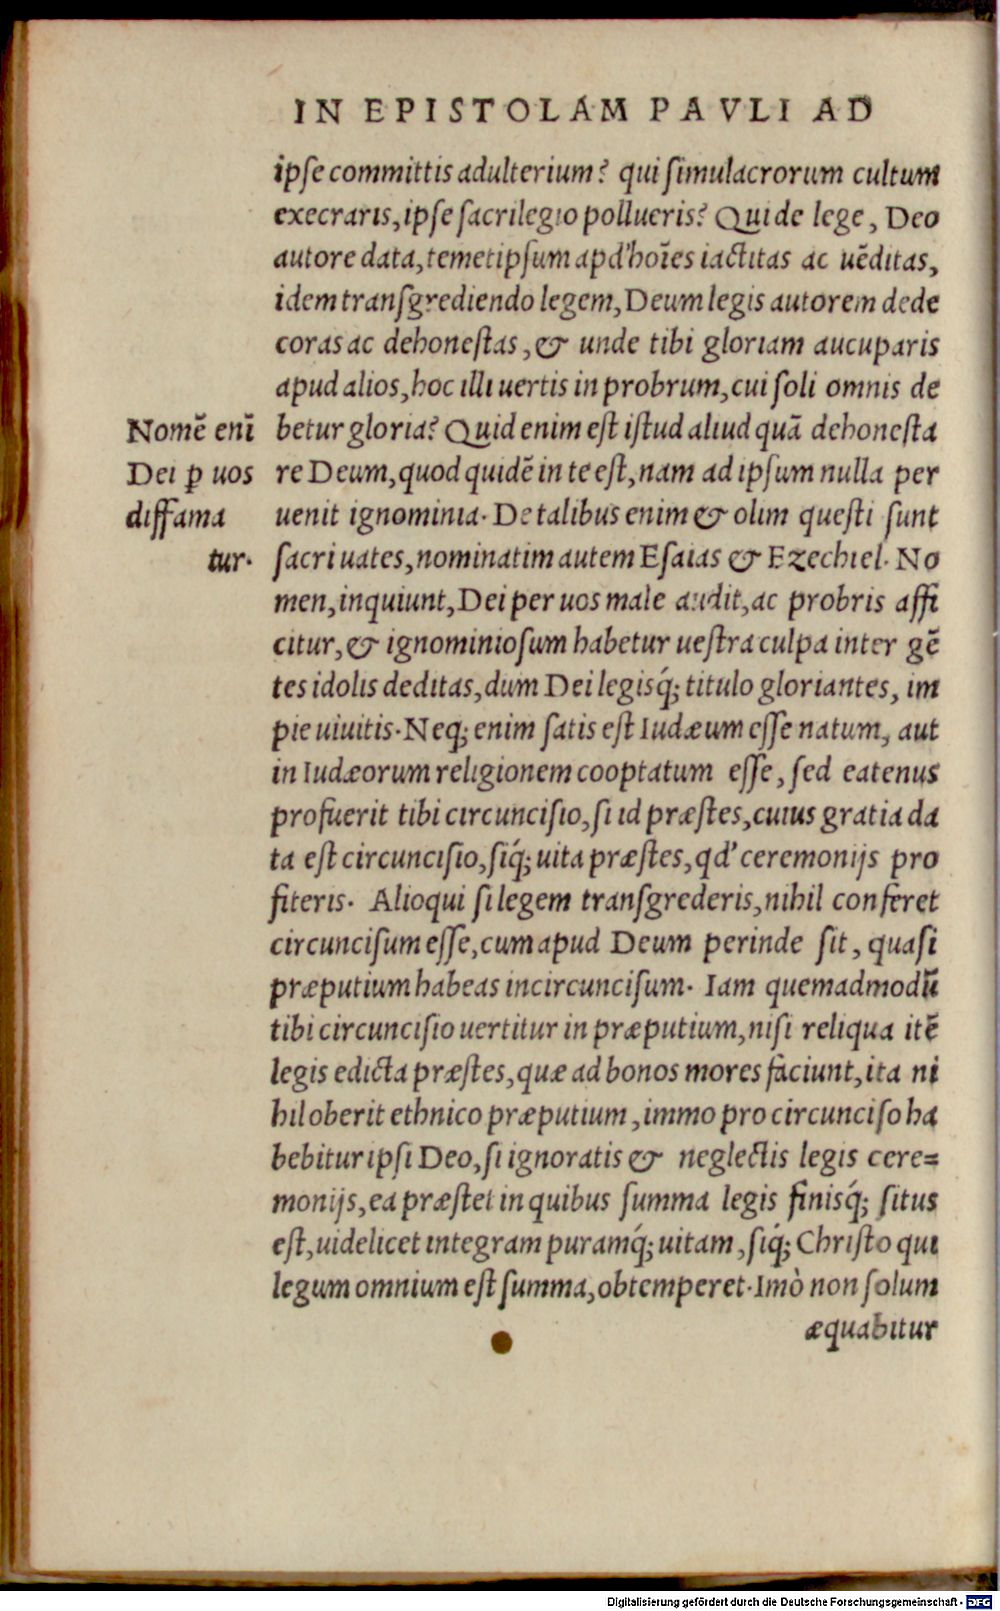 IN EPISTOLAM PAVLI AD
ipse committis adulterium? qui simulacrorum cultum
execraris, ipse sacrilegio pollueris? Qui de lege, Deo
autore data, temetipsum apd' hoīes iactitas ac uēditas,
idem transgrediendo legem, Deum legis autorem dede
coras ac dehonestas, & unde tibi gloriam aucuparis
apud alios, hoc illi uertis in probrum, cui soli omnis de
betur gloria? Quid enim est istud aliud quā dehonesta
re Deum, quod quidē in te est, nam ad ipsum nulla per
uenit ignominia. De talibus enim & olim questi sunt
sacri uates, nominatim autem Esaias & Ezechiel. No
men, inquiunt, Dei per uos male audit, ac probris affi
citur, & ignominiosum habetur uestra culpa inter gē
tes idolis deditas, dum Dei legisq́; titulo gloriantes, im
pie uiuitis. Neq; enim satis est Iudæum esse natum, aut
in Iudæorum religionem cooptatum esse, sed eatenus
profuerit tibi circuncisio, si id præstes, cuius gratia da
ta est circuncisio, siq́; uita præstes, qd' ceremonijs pro
fiteris. Alioqui si legem transgrederis, nihil conferet
circuncisum esse, cum apud Deum perinde sit, quasi
præputium habeas incircuncisum. Iam quemadmodū
tibi circuncisio uertitur in præputium, nisi reliqua itē
legis edicta præstes, quæ ad bonos mores faciunt, ita ni
hil oberit ethnico præputium, immo pro circunciso ha
bebitur ipsi Deo, si ignoratis & neglectis legis cere=
monijs, ea præstet in quibus summa legis finisq́; situs
est, uidelicet integram puramq́; uitam, siq́; Christo qui
legum omnium est summa, obtemperet. Imò non solum
æquabitur
Nomē enī
Dei ꝑ uos
diffama
tur.
Digitalisierung gefördert durch die Deutsche Forschungsgemeinschaft - DFG